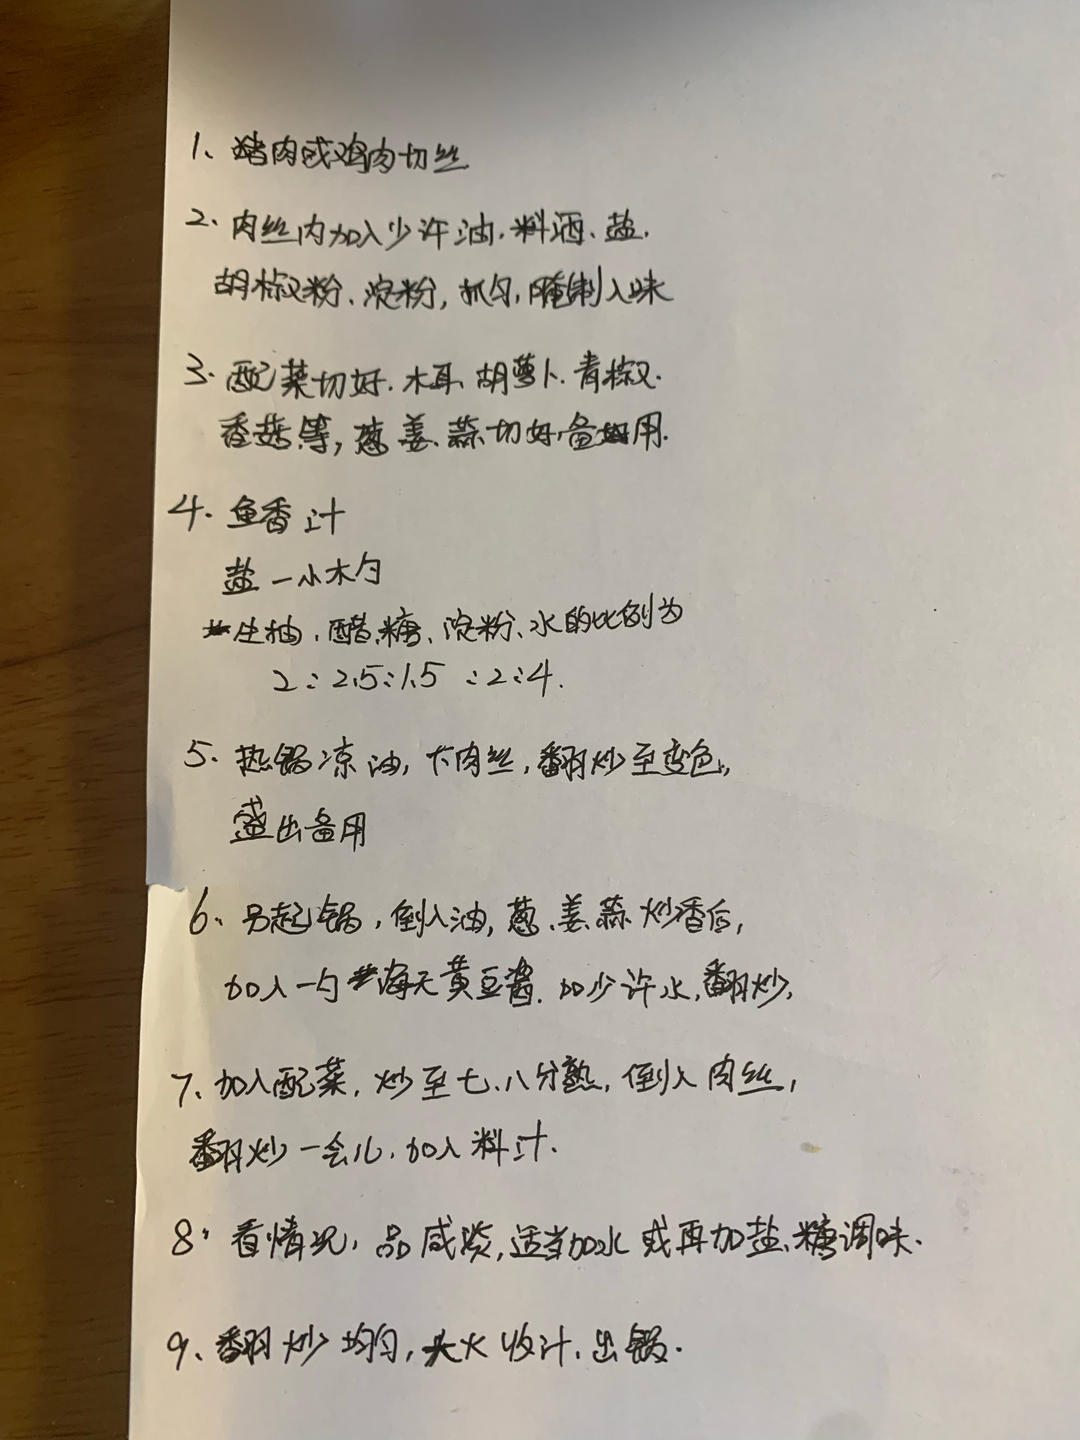 1、猪肉或鸡肉切丝
2. 肉丝内加入少许油、料酒、盐、
胡椒粉、淀粉，抓匀，腌制入味
3. 配菜切好、木耳、胡萝卜、青椒、
香菇等，葱、姜、蒜切好备用.
4. 鱼香汁
盐一小木勺
生抽、醋、糖、淀粉、水的比例为
2:2.5:1.5:2:4.
5. 热锅凉油，下肉丝，翻炒至变色，
盛出备用
6、另起锅，倒入油，葱、姜、蒜炒香后，
加入一勺海天黄豆酱、加少许水，翻炒，
7、加入配菜，炒至七、八分熟，倒入肉丝，
翻炒一会儿、加入料汁.
8、看情况，品咸淡，适当加水或再加盐、糖调味.
9、翻炒均匀，大火收汁、出锅.